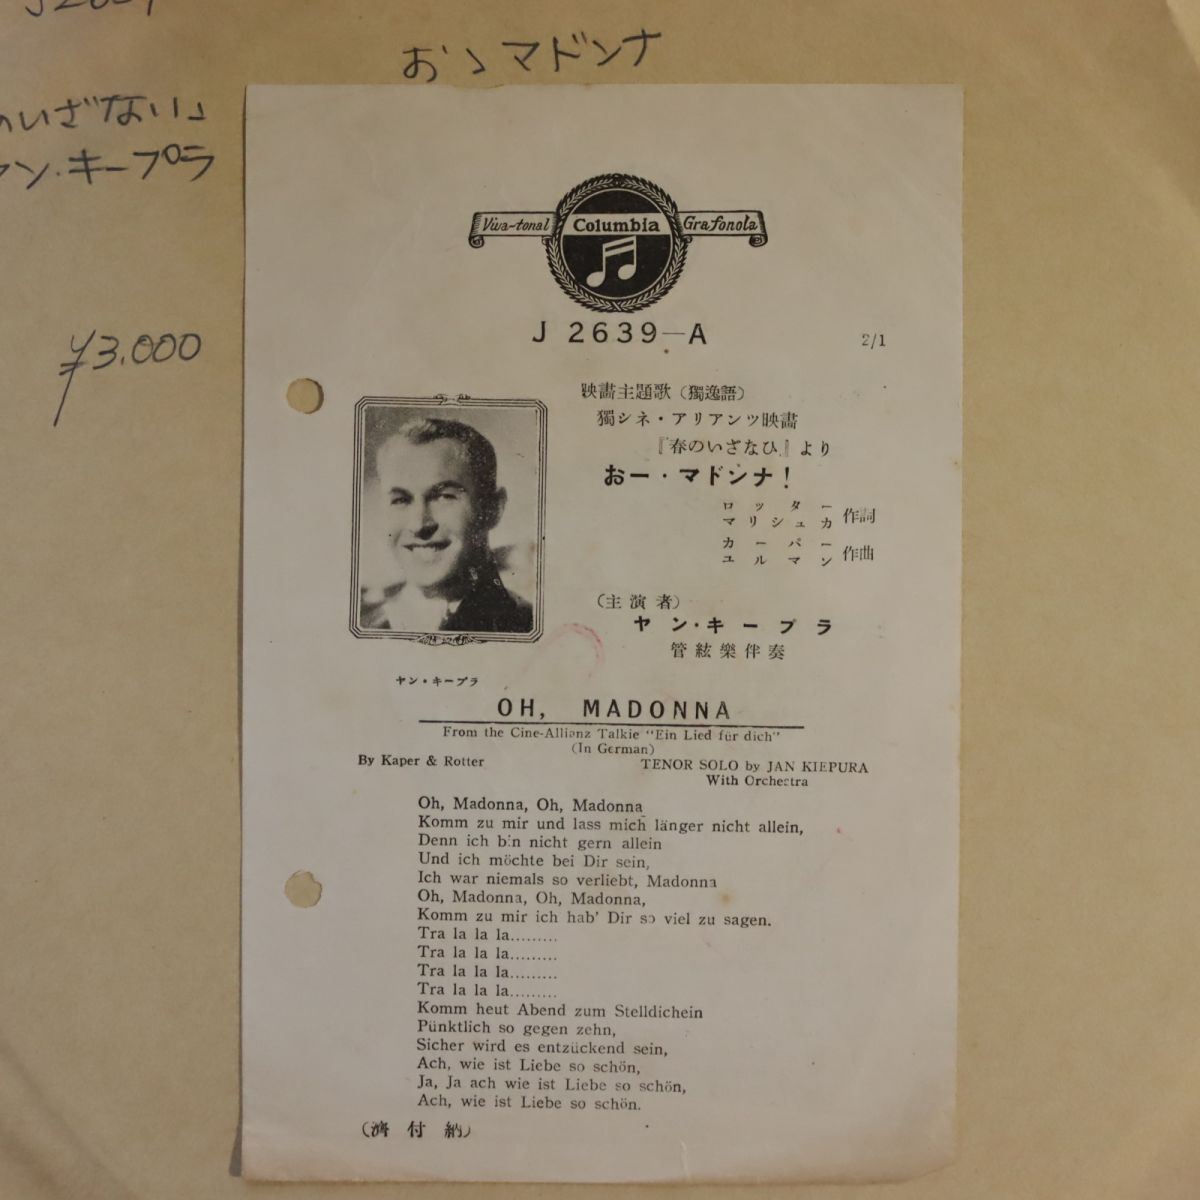 おゝマドンナ
のいざない」
ヤン・キープラ
¥3.000
Viva-tonal Columbia Grafonola
J 2639—A
2/1
映畵主題歌（獨逸語）
獨シネ・アリアンツ映畵
『春のいざなひ』より
おー・マドンナ！
ロッター
マリシュカ 作詞
カーパー
ユルマン 作曲
（主演者）
ヤン・キープラ
管絃樂伴奏
ヤン・キープラ
OH, MADONNA
From the Cine-Allianz Talkie "Ein Lied für dich"
(In German)
By Kaper & Rotter
TENOR SOLO by JAN KIEPURA
With Orchestra
Oh, Madonna, Oh, Madonna
Komm zu mir und lass mich länger nicht allein,
Denn ich bin nicht gern allein
Und ich möchte bei Dir sein,
Ich war niemals so verliebt, Madonna
Oh, Madonna, Oh, Madonna,
Komm zu mir ich hab' Dir so viel zu sagen.
Tra la la la.........
Tra la la la.........
Tra la la la.........
Tra la la la.........
Komm heut Abend zum Stelldichein
Pünktlich so gegen zehn,
Sicher wird es entzückend sein,
Ach, wie ist Liebe so schön,
Ja, Ja ach wie ist Liebe so schön,
Ach, wie ist Liebe so schön.
（濟付納）